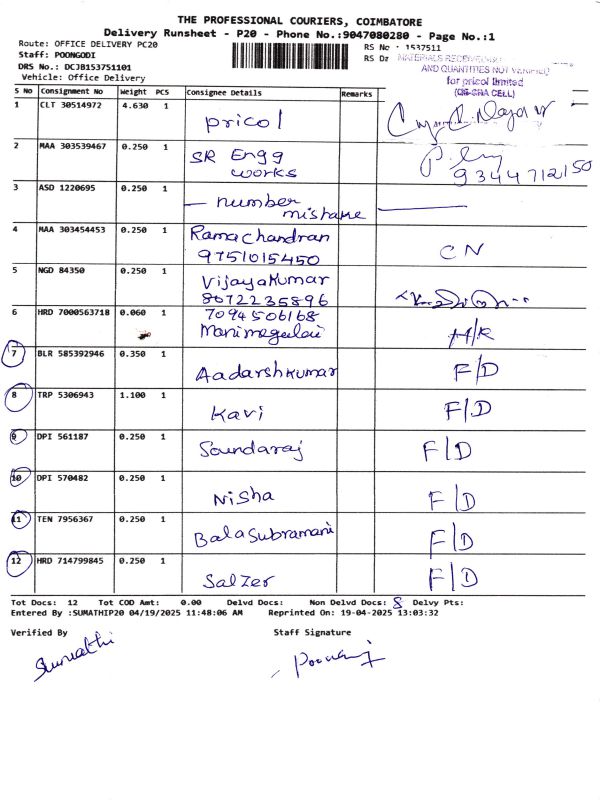 THE PROFESSIONAL COURIERS, COIMBATORE
Delivery Runsheet - P20 - Phone No.:9047080280 - Page No.:1
Route: OFFICE DELIVERY PC20
RS No : 1537511
Staff: POONGODI
RS D
MATERIALS RECEIVED
DRS No.: DCJB153751101
AND QUANTITIES NOT VERIFIED
Vehicle: Office Delivery
for pricol limited
S No Consignment No Weight PCS Consignee Details Remarks
1 CLT 30514972 4.630 1 pricol
2 MAA 303539467 0.250 1 SR Engg
works
9344712150
3 ASD 1220695 0.250 1 — number
mistake
4 MAA 303454453 0.250 1 Ramachandran
9751015450 CN
5 NGD 84350 0.250 1 Vijayakumar
8072235896
6 HRD 7000563718 0.060 1 7094506168
Manimegalai
7 BLR 585392946 0.350 1 Aadarshkumar F/D
8 TRP 5306943 1.100 1 Kavi F/D
9 DPI 561187 0.250 1 Soundaraj F/D
10 DPI 570482 0.250 1 Nisha F/D
11 TEN 7956367 0.250 1 Balasubramani F/D
12 HRD 714799845 0.250 1 Salzer F/D
Tot Docs: 12 Tot COD Amt: 0.00 Delvd Docs: Non Delvd Docs: 8 Delvy Pts:
Entered By :SUMATHIP20 04/19/2025 11:48:06 AM Reprinted On: 19-04-2025 13:03:32
Verified By Staff Signature
Sumathi